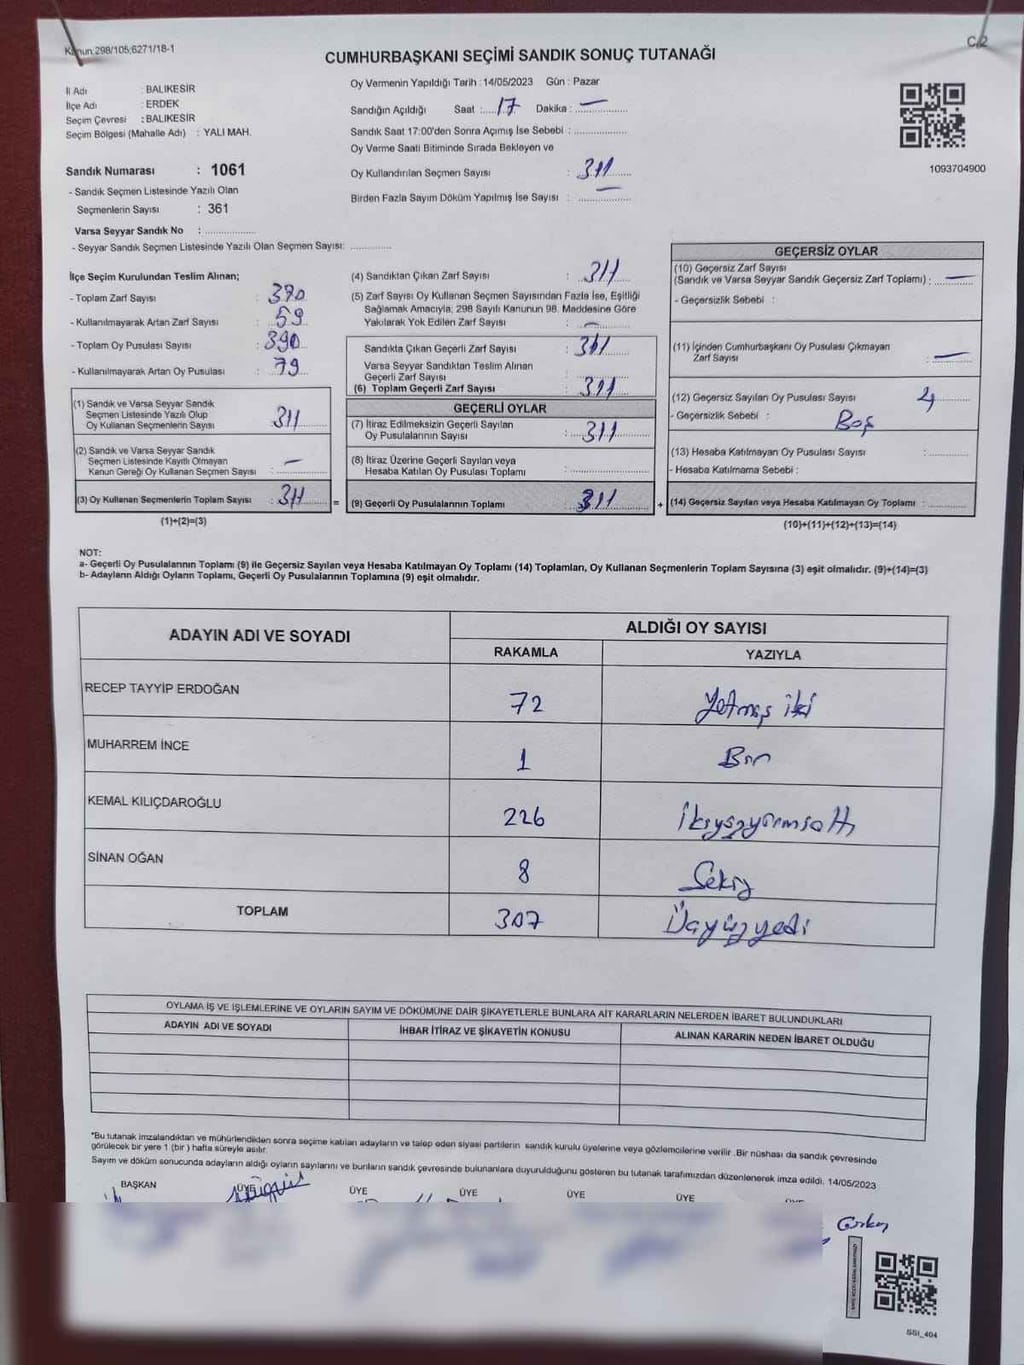 Kanun:298/105;6271/18-1
C/2
CUMHURBAŞKANI SEÇİMİ SANDIK SONUÇ TUTANAĞI
İl Adı : BALIKESİR
İlçe Adı : ERDEK
Seçim Çevresi : BALIKESİR
Seçim Bölgesi (Mahalle Adı) : YALI MAH.
Oy Vermenin Yapıldığı Tarih : 14/05/2023 Gün : Pazar
Sandığın Açıldığı Saat :.....17 Dakika : —
Sandık Saat 17:00'den Sonra Açımış İse Sebebi :
Oy Verme Saati Bitiminde Sırada Bekleyen ve
Oy Kullandırılan Seçmen Sayısı : 311
Birden Fazla Sayım Döküm Yapılmış İse Sayısı : —
1093704900
Sandık Numarası : 1061
- Sandık Seçmen Listesinde Yazılı Olan
Seçmenlerin Sayısı : 361
Varsa Seyyar Sandık No :
- Seyyar Sandık Seçmen Listesinde Yazılı Olan Seçmen Sayısı:
İlçe Seçim Kurulundan Teslim Alınan;
- Toplam Zarf Sayısı : 370
- Kullanılmayarak Artan Zarf Sayısı : 59
- Toplam Oy Pusulası Sayısı : 390
- Kullanılmayarak Artan Oy Pusulası : 79
(1) Sandık ve Varsa Seyyar Sandık
Seçmen Listesinde Yazılı Olup
Oy Kullanan Seçmenlerin Sayısı : 311
(2) Sandık ve Varsa Seyyar Sandık
Seçmen Listesinde Kayıtlı Olmayan
Kanun Gereği Oy Kullanan Seçmen Sayısı : —
(3) Oy Kullanan Seçmenlerin Toplam Sayısı : 311 =
(1)+(2)=(3)
(4) Sandıktan Çıkan Zarf Sayısı : 311
(5) Zarf Sayısı Oy Kullanan Seçmen Sayısından Fazla İse, Eşitliği
Sağlamak Amacıyla, 298 Sayılı Kanunun 98. Maddesine Göre
Yakılarak Yok Edilen Zarf Sayısı : —
Sandıkta Çıkan Geçerli Zarf Sayısı : 311
Varsa Seyyar Sandıktan Teslim Alınan
Geçerli Zarf Sayısı :
(6) Toplam Geçerli Zarf Sayısı : 311
GEÇERLİ OYLAR
(7) İtiraz Edilmeksizin Geçerli Sayılan
Oy Pusulalarının Sayısı : 311
(8) İtiraz Üzerine Geçerli Sayılan veya
Hesaba Katılan Oy Pusulası Toplamı :
(9) Geçerli Oy Pusulalarının Toplamı : 311 +
GEÇERSİZ OYLAR
(10) Geçersiz Zarf Sayısı
(Sandık ve Varsa Seyyar Sandık Geçersiz Zarf Toplamı) : —
- Geçersizlik Sebebi :
(11) İçinden Cumhurbaşkanı Oy Pusulası Çıkmayan
Zarf Sayısı : —
(12) Geçersiz Sayılan Oy Pusulası Sayısı : 4
- Geçersizlik Sebebi : Boş
(13) Hesaba Katılmayan Oy Pusulası Sayısı :
- Hesaba Katılmama Sebebi :
(14) Geçersiz Sayılan veya Hesaba Katılmayan Oy Toplamı :
(10)+(11)+(12)+(13)=(14)
NOT:
a- Geçerli Oy Pusulalarının Toplamı (9) ile Geçersiz Sayılan veya Hesaba Katılmayan Oy Toplamı (14) Toplamları, Oy Kullanan Seçmenlerin Toplam Sayısına (3) eşit olmalıdır. (9)+(14)=(3)
b- Adayların Aldığı Oyların Toplamı, Geçerli Oy Pusulalarının Toplamına (9) eşit olmalıdır.
ADAYIN ADI VE SOYADI
ALDIĞI OY SAYISI
RAKAMLA YAZIYLA
RECEP TAYYİP ERDOĞAN 72 Yetmiş iki
MUHARREM İNCE 1 Bir
KEMAL KILIÇDAROĞLU 226 İkiyüzyirmialtı
SİNAN OĞAN 8 Sekiz
TOPLAM 307 Üçyüzyedi
OYLAMA İŞ VE İŞLEMLERİNE VE OYLARIN SAYIM VE DÖKÜMÜNE DAİR ŞİKAYETLERLE BUNLARA AİT KARARLARIN NELERDEN İBARET BULUNDUKLARI
ADAYIN ADI VE SOYADI İHBAR İTİRAZ VE ŞİKAYETİN KONUSU ALINAN KARARIN NEDEN İBARET OLDUĞU
*Bu tutanak imzalandıktan ve mühürlendikten sonra seçime katılan adayların ve talep eden siyasi partilerin sandık kurulu üyelerine veya gözlemcilerine verilir. Bir nüshası da sandık çevresinde
görülecek bir yere 1 (bir) hafta süreyle asılır.
Sayım ve döküm sonucunda adayların aldığı oyların sayılarını ve bunların sandık çevresinde bulunanlara duyurulduğunu gösteren bu tutanak tarafımızdan düzenlenerek imza edildi. 14/05/2023
BAŞKAN ÜYE ÜYE ÜYE ÜYE ÜYE ÜYE
SSI_404